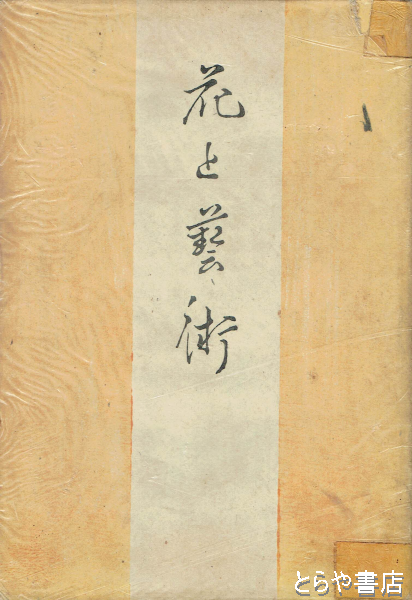 花と藝術
とらや書店